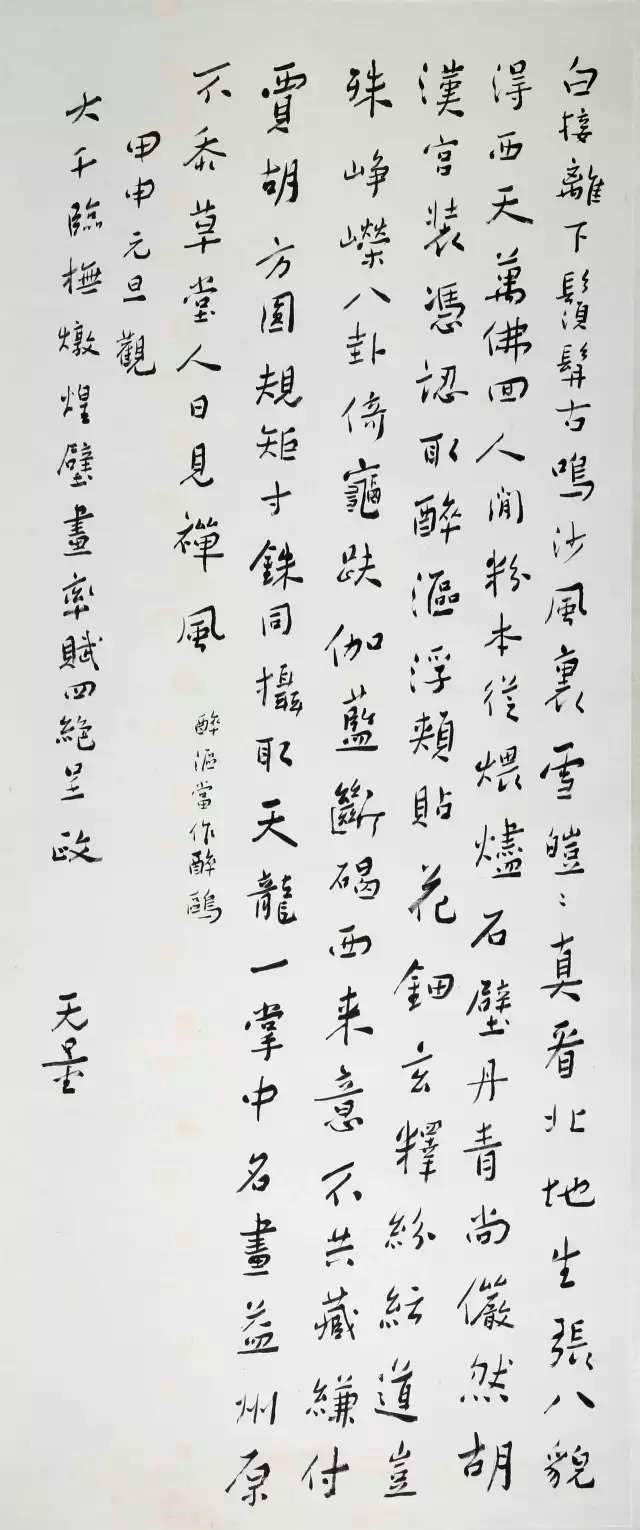 白接離下鬚髯古鳴沙風裏雪皚〻真看北地生張八貌
得西天萬佛回人間粉本從煨燼石壁丹青尚儼然胡
漢宮裝憑認取醉漚浮頰貼花鈿玄釋紛紜道豈
殊崢嶸八卦倚龜趺伽藍斷碣西来意不共藏縑付
賈胡方圓規矩寸銖同攝取天龍一掌中名畫益州原
不忝草堂人日見禪風
醉漚當作醉鷗
甲申元旦觀
大千臨橅燉煌壁畫率賦四絕呈政
无量